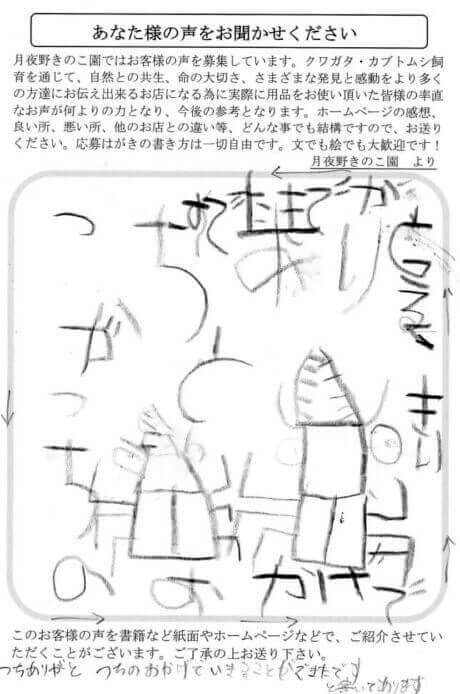 あなた様の声をお聞かせください
月夜野きのこ園ではお客様の声を募集しています。クワガタ・カブトムシ飼
育を通じて、自然との共生、命の大切さ、さまざまな発見と感動をより多く
の方達にお伝え出来るお店になる為に実際に用品をお使い頂いた皆様の率直
なお声が何よりの力となり、今後の参考となります。ホームページの感想、
良い所、悪い所、他のお店との違い等、どんな事でも結構ですので、お送り
ください。応募はがきの書き方は一切自由です。文でも絵でも大歓迎です!
月夜野きのこ園 より
このお客様の声を書籍など紙面やホームページなどで、ご紹介させてい
ただくことがございます。ご了承の上お送り下さい。
つちありがと つちのおかげでいきることができたです
と書いてあります